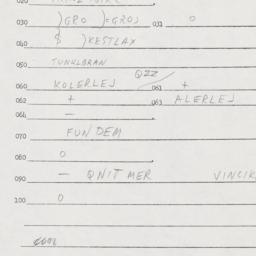 030 )GRO )=GROJ 031 0
040 )KESTLAX
050 TUNKLBRAN
QZZ
060 KOLERLEJ 061 +
062 + 063 ALERLEJ
064 —
070 FUNDEM
080 0
090 — QNIT MER VINCIK
100 0